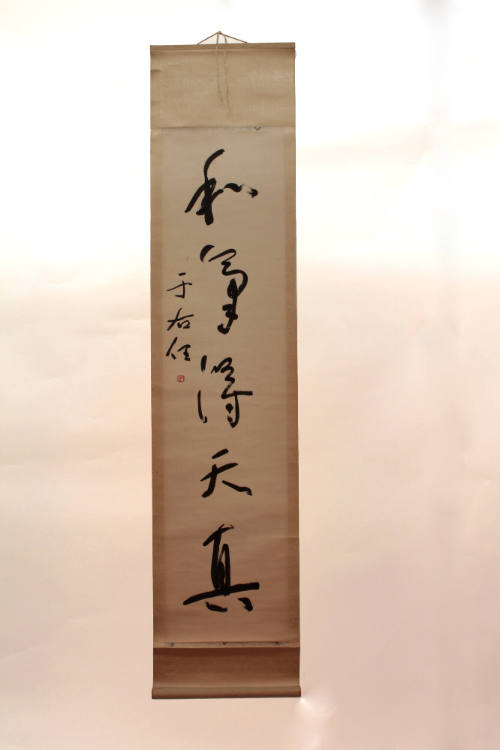 和氣得天真
于右任